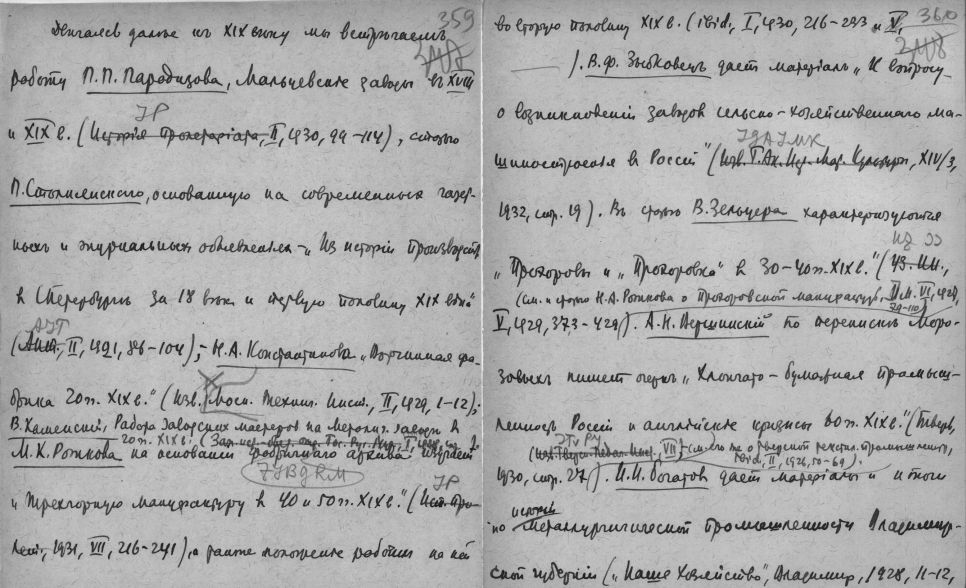 359
Двигаясь далее в XIX веку мы встречаем
работу П.П. Парадизова, Мальцевские заводы в XVIII
IP
и XIX в. (История Пролетариата, II, 1930, 99-114), статью
П. Столпянского, основанную на современных газет-
ных и журнальных объявлениях - „Из истории производств
в С Петербурге за 18 век и первую половину XIX века"
АИТ
(Арх., II, 1921, 86-104), - Н.А. Константинова „Вотчинная фа-
брика 20 гг. XIX в." (Изв. Моск. Техни. Инст., II, 1929, 1-12);
В. Каменский, Работа заводских мастеров на заводах в
20 гг. XIX в.
М.К. Рожкова на основании фабричного архива изучает
и Трехгорную мануфактуру в 40 и 50 гг. XIX в." (Ист. Про-
IP
лет., 1931, VII, 216-241), а ранее положение рабочих на ней
360
во вторую половину XIX в. (ibid, I, 1930, 216-293 и V,
). В.Ф. Зыбковец дает материал „К вопросу
о возникновении заводов сельско-хозяйственного ма-
IGAIMK
шиностроения в России" (Изв. Г. Ак. Ист. Мат. Культуры, XIV/3,
1932, стр. 19). В статье В. Зельцера характеризуются
„Прохоровы и „Прохоровка" в 30-40 гг. XIX в."
(см. и статью Н.А. Рожкова о Прохоровской мануфактуре, И.М. VI, 1928,
79-110)
V, 1929, 373-429). А.Н. Вершинский по переписке Моро-
зовых пишет очерк „Хлопчато-бумажная промыш-
ленность России и английские кризисы 60 гг. XIX в." (Тверь,
(Изв. Тверск. Педаг. Инст., VII) - см. его же о тверской текстил. промышленности,
ibid, II, 1926, 50-69).
1930, стр. 27). И.И. Богатов дает материалы и итоги
истории
по металлургической промышленности Владимир-
ской губернии („Наше Хозяйство", Владимир, 1928, 11-12,